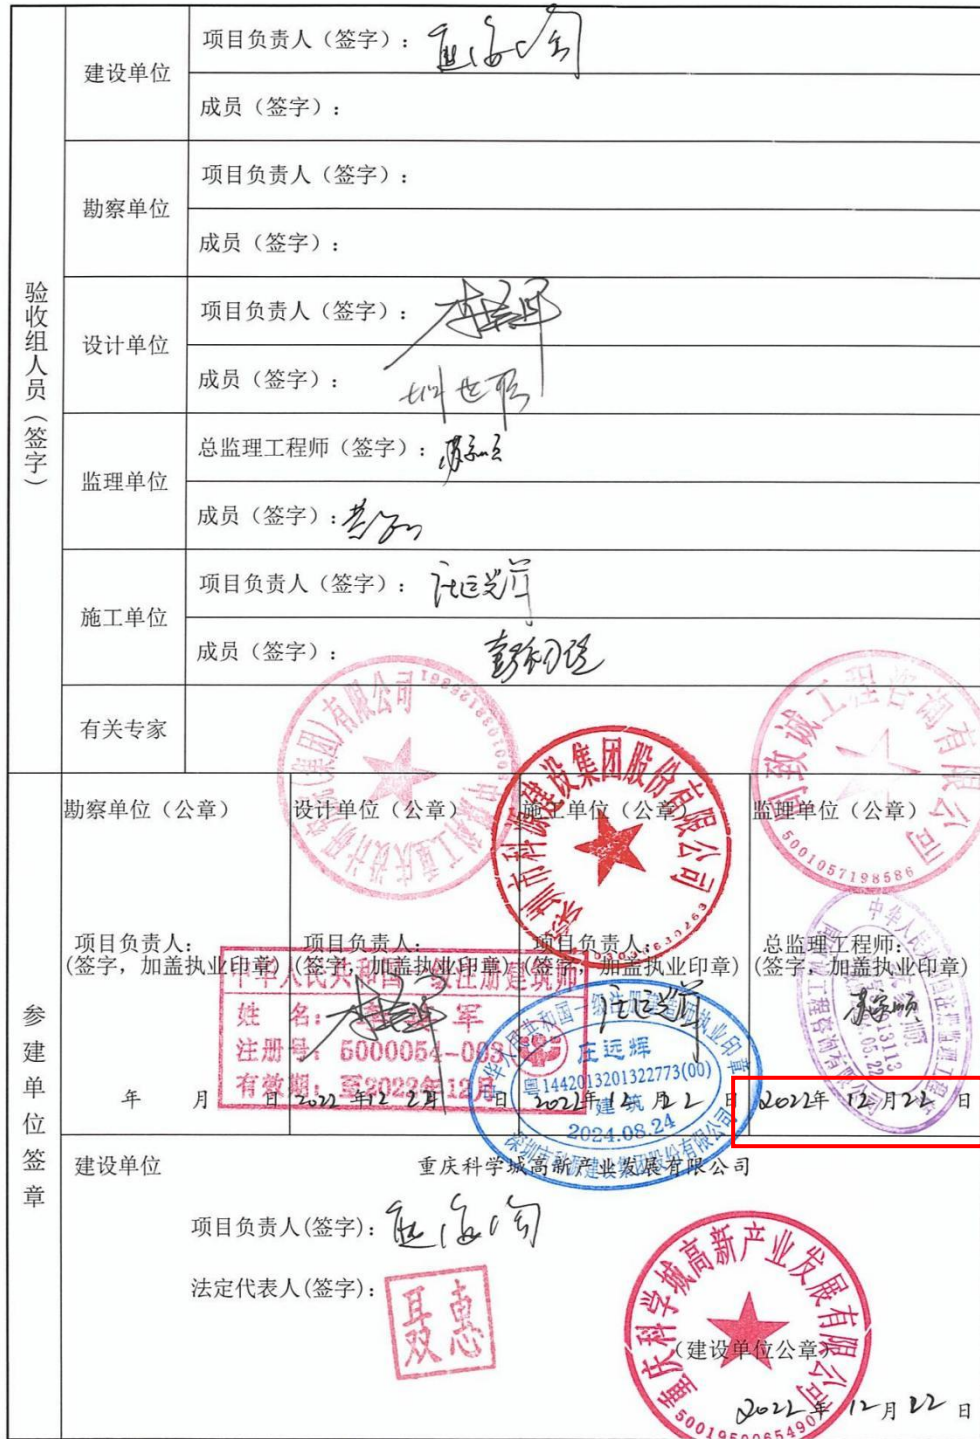 验收组人员（签字）
建设单位
项目负责人（签字）：
成员（签字）：
勘察单位
项目负责人（签字）：
成员（签字）：
设计单位
项目负责人（签字）：
成员（签字）：
监理单位
总监理工程师（签字）：
成员（签字）：
施工单位
项目负责人（签字）：
成员（签字）：
有关专家
参建单位签章
勘察单位（公章）
项目负责人：
（签字，加盖执业印章）
年 月 日
设计单位（公章）
项目负责人：
（签字，加盖执业印章）
中华人民共和国一级注册建筑师
姓 名： 军
注册号：5000054-003
有效期：至2022年12月
2022年12月 日
施工单位（公章）
深圳市科源建设集团股份有限公司
项目负责人：
（签字，加盖执业印章）
庄远辉
粤1442013201322773(00)
建筑
2024.08.24
深圳市科源建设集团股份有限公司
2022年12月22日
监理单位（公章）
同致诚工程咨询有限公司
5001057198586
总监理工程师：
（签字，加盖执业印章）
2022年12月22日
建设单位
重庆科学城高新产业发展有限公司
项目负责人(签字)：
法定代表人(签字)：
聂惠
重庆科学城高新产业发展有限公司
（建设单位公章）
2022年12月22日